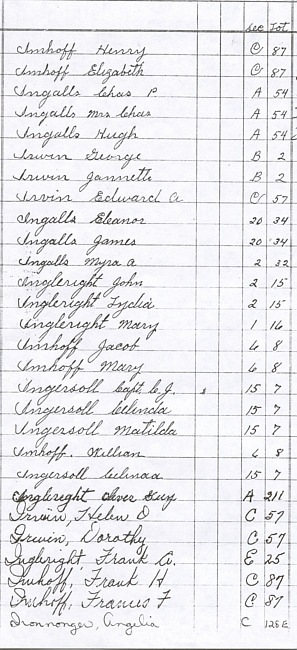 Sec Lot
Imhoff Henry C 87
Imhoff Elizabeth C 87
Ingalls Chas P. A 54
Ingalls Mrs Chas A 54
Ingalls Hugh A 54
Irwin George B 2
Irwin Jannette B 2
Irvin Edward A C 57
Ingalls Eleanor 20 34
Ingalls James 20 34
Ingalls Myra A 2 32
Ingleright John 2 15
Ingleright Lydia 2 15
Ingleright Mary 1 16
Imhoff Jacob 6 8
Imhoff Mary 6 8
Ingersoll Capt. C.J. 15 7
Ingersoll Celinda 15 7
Ingersoll Matilda 15 7
Imhoff. William 6 8
Ingersoll 15 7
Ingleright Guy A 211
Irwin, Helen D C 57
Irwin, Dorothy C 57
Ingleright, Frank A. E 25
Imhoff, Frank H C 87
Imhoff, Francis F C 87
Ironmonger, Angelia C 128E